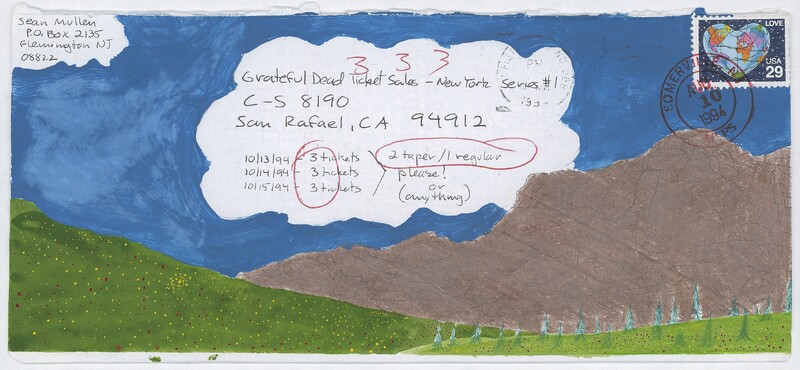 Sean Mullen
P.O. Box 2135
Flemington NJ
08822
3 3 3
Grateful Dead Ticket Sales - New York Series #1
C-S 8190
San Rafael, CA 94912
10/13/94 - 3 tickets
10/14/94 - 3 tickets
10/15/94 - 3 tickets
2 taper/1 regular
please!
or
(anything)
LOVE
USA
29
PM
199
SOMERVILLE
AUG
10
1994